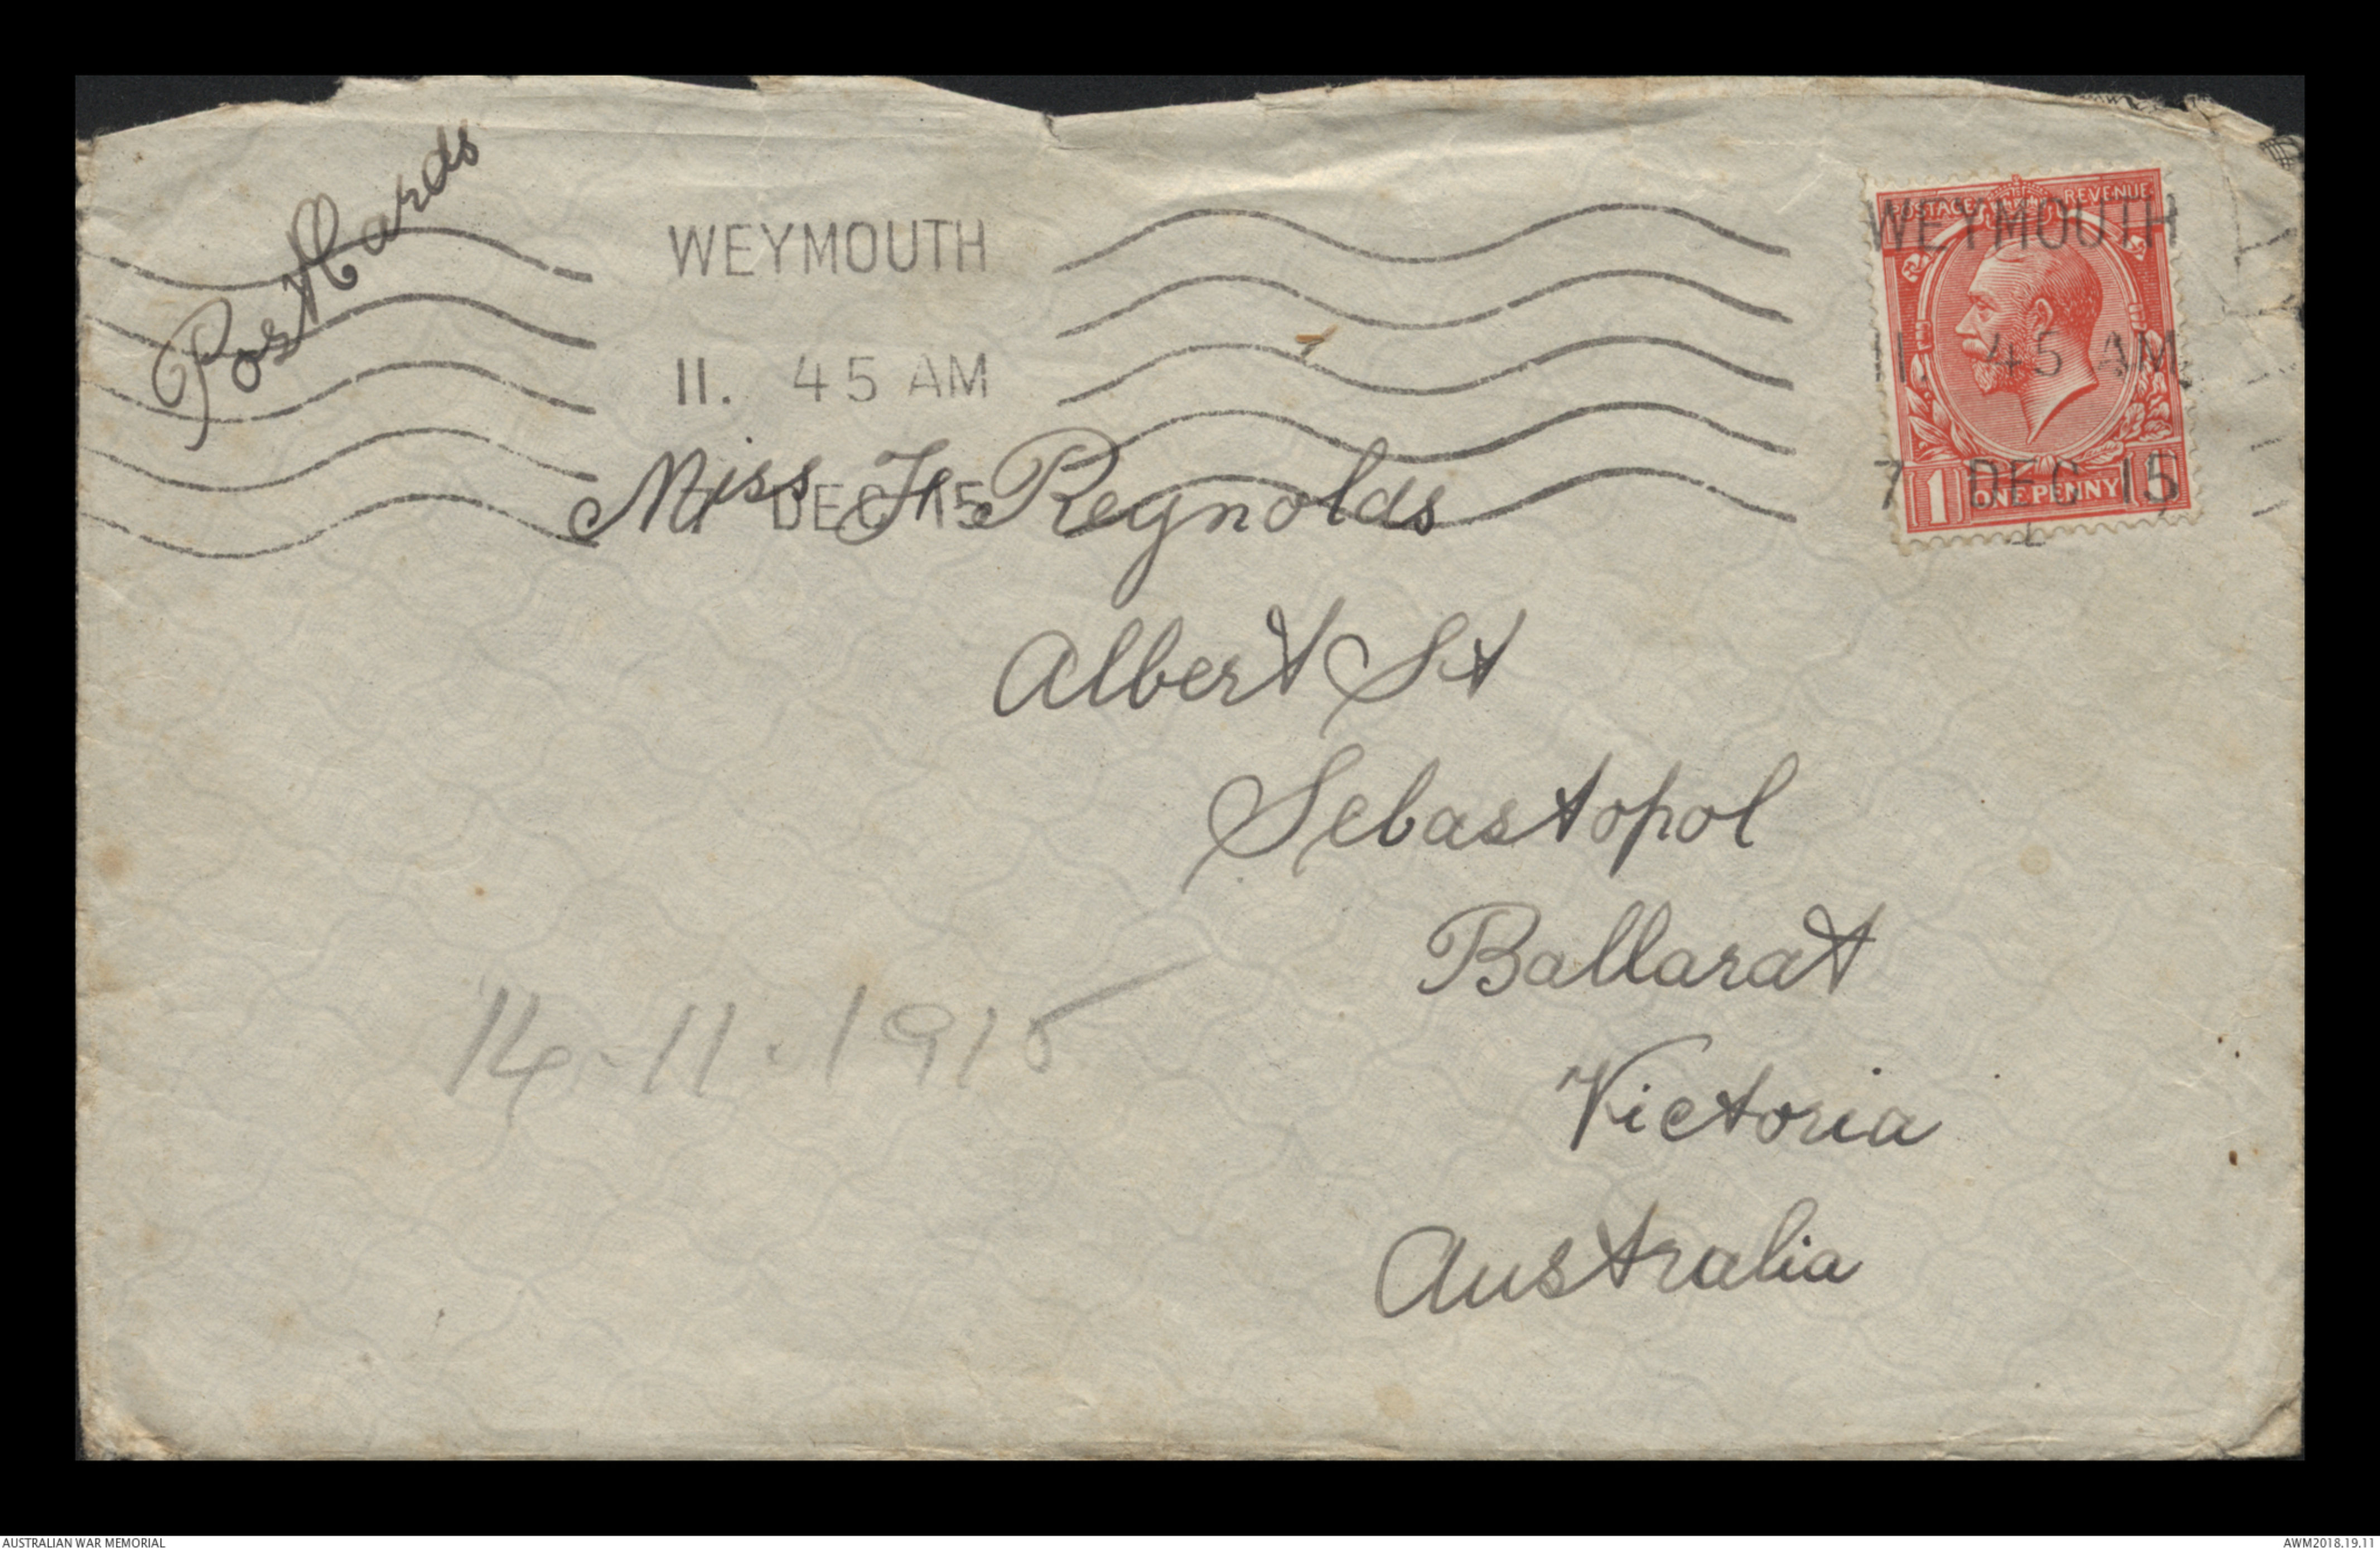 Postcards
WEYMOUTH
11. 45 AM
7 DEC 15
POSTAGE REVENUE
WEYMOUTH
11. 45 AM
7 DEC 15
1 ONE PENNY
Miss F Reynolds
Albert St
Sebastopol
Ballarat
Victoria
Australia
14.11.1915
AUSTRALIAN WAR MEMORIAL
AWM2018.19.11